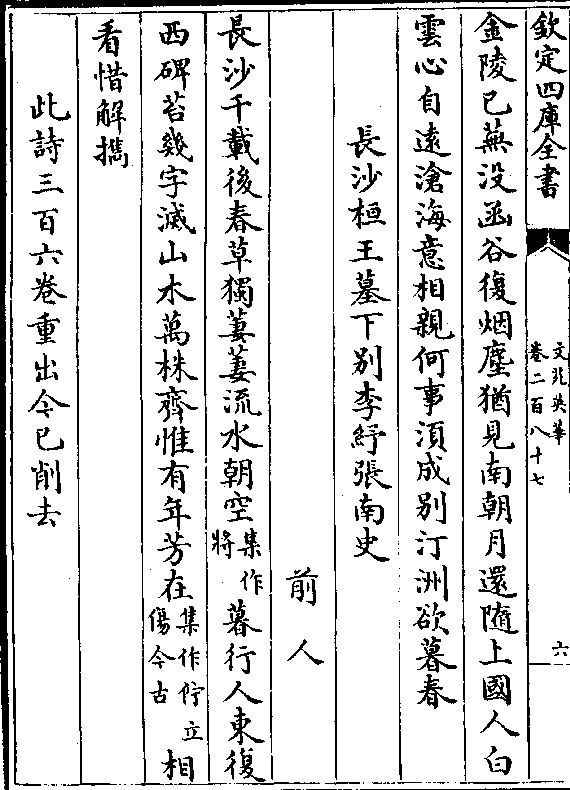 欽定四庫全書
文苑英華
卷二百八十七
六
金陵已蕪没函谷復烟塵猶見南朝月還随上國人白
雲心自遠滄海意相親何事須成别汀洲欲暮春
長沙桓王墓下别李紓張南史
前人
長沙千載後春草獨萋萋流水朝空集作將暮行人東復
西碑苔幾字滅山木萬株齊惟有年芳在集作佇立傷今古相
看惜解攜
此詩三百六卷重出今已削去